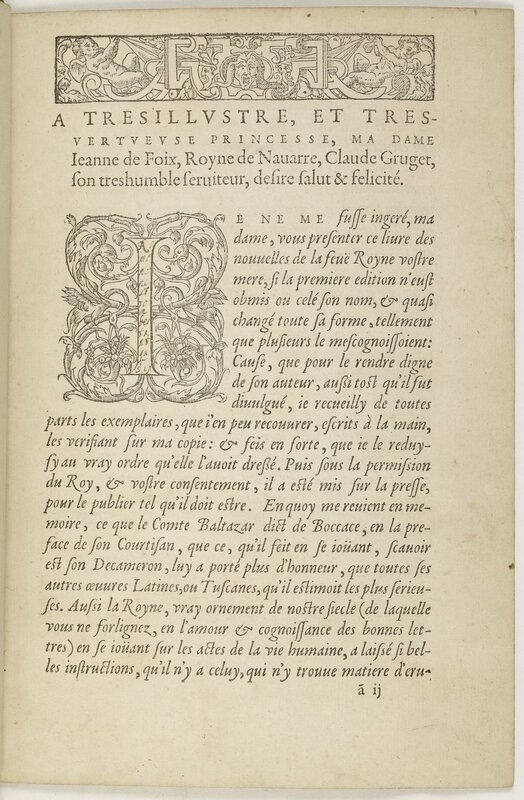 A TRESILLVSTRE, ET TRES-
VERTVEVSE PRINCESSE, MA DAME
Ieanne de Foix, Royne de Nauarre, Claude Gruget,
ſon treshumble ſeruiteur, deſire ſalut & felicité.
IE NE ME fuſſe ingeré, ma
dame, vous preſenter ce liure des
nouuelles de la feuë Royne voſtre
mere, ſi la premiere edition n'euſt
obmis ou celé ſon nom, & quaſi
changé toute ſa forme, tellement
que pluſieurs le meſcognoiſſoient:
Cauſe, que pour le rendre digne
de ſon auteur, auſsi toſt qu'il fut
diuulgué, ie recueilly de toutes
parts les exemplaires, que i'en peu recouurer, eſcrits à la main,
les verifiant ſur ma copie: & feis en ſorte, que ie le reduy-
ſy au vray ordre qu'elle l'auoit dreßé. Puis ſous la permiſsion
du Roy, & voſtre conſentement, il a eſté mis ſur la preſſe,
pour le publier tel qu'il doit eſtre. En quoy me reuient en me-
moire, ce que le Comte Baltazar dict de Boccace, en la pre-
face de ſon Courtiſan, que ce, qu'il feit en ſe ioüant, ſcauoir
eſt ſon Decameron, luy a porté plus d'honneur, que toutes ſes
autres œuures Latines, ou Tuſcanes, qu'il eſtimoit les plus ſerieu-
ſes. Auſsi la Royne, vray ornement de noſtre ſiecle (de laquelle
vous ne forlignez, en l'amour & cognoiſſance des bonnes let-
tres) en ſe ioüant ſur les actes de la vie humaine, a laiſſé ſi bel-
les inſtructions, qu'il n'y a celuy, qui n'y trouue matiere d'eru-
ã ij